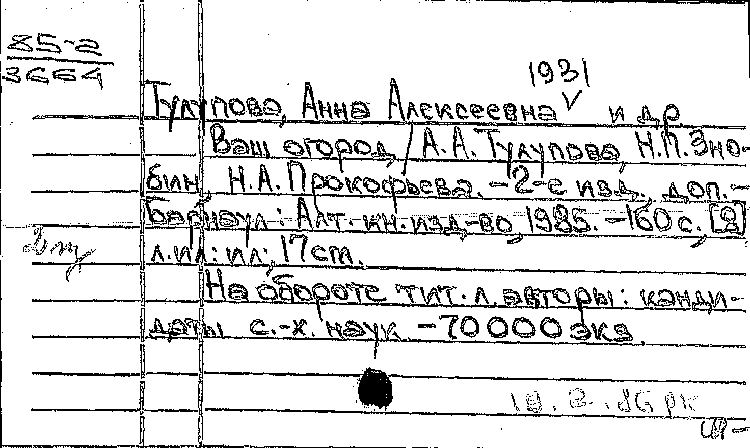 85-2
3664
1931
Тулупова, Анна Алексеевна и др
Ваш огород / А. А. Тулупова, Н.П. Зно-
бин, Н.А. Прокофьева. -2-е изд., доп.-
Барнаул: Алт. кн. изд-во, 1985. -160 с., [8]
л.ил: ил; 17 см.
На обороте тит. л. авторы: канди-
даты с.-х. наук. -70000 экз.